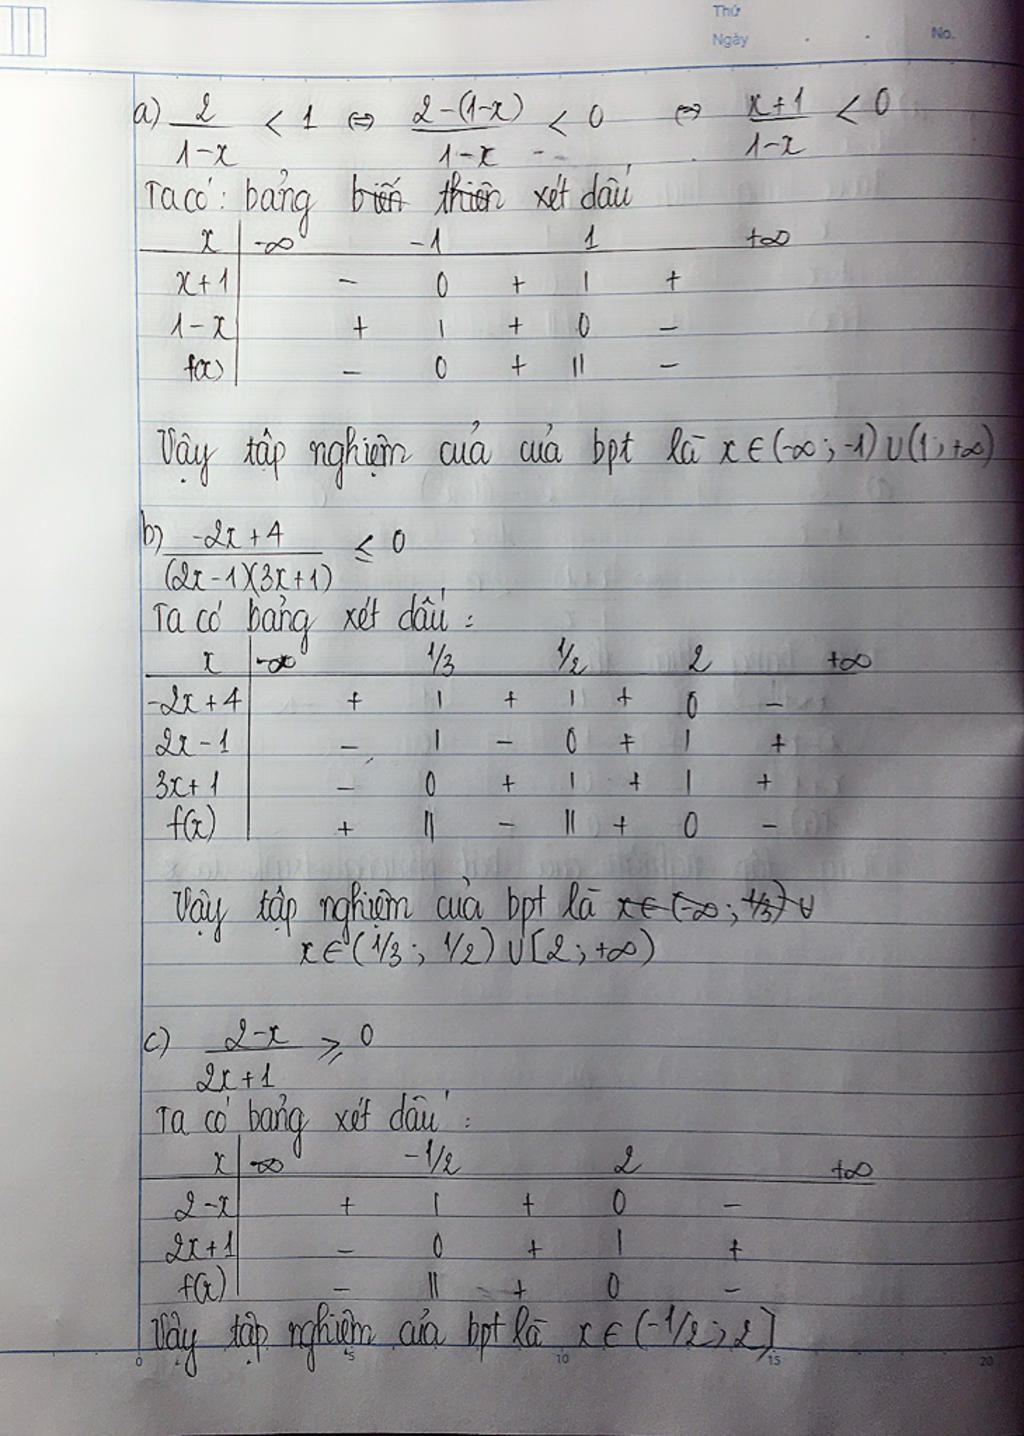 Thứ
Ngày . . No.
a) 2/(1-x) < 1 ⇔ (2-(1-x))/(1-x) < 0 ⇔ (x+1)/(1-x) < 0
Ta có: bảng biến thiên xét dấu
x -∞ -1 1 +∞
x+1 - 0 + | +
1-x + | + 0 -
f(x) - 0 + || -
Vậy tập nghiệm của của bpt là x ∈ (-∞; -1) ∪ (1; +∞)
b) (-2x+4)/((2x-1)(3x+1)) ≤ 0
Ta có bảng xét dấu :
x -∞ 1/3 1/2 2 +∞
-2x+4 + | + | + 0 -
2x-1 - | - 0 + | +
3x+1 - 0 + | + | +
f(x) + || - || + 0 -
Vậy tập nghiệm của bpt là x ∈ (-∞; 1/3) ∪
x ∈ (1/3; 1/2) ∪ [2; +∞)
c) (2-x)/(2x+1) ≥ 0
Ta có bảng xét dấu :
x -∞ -1/2 2 +∞
2-x + | + 0 -
2x+1 - 0 + | +
f(x) - || + 0 -
Vậy tập nghiệm của bpt là x ∈ (-1/2; 2]
0 5 10 15 20